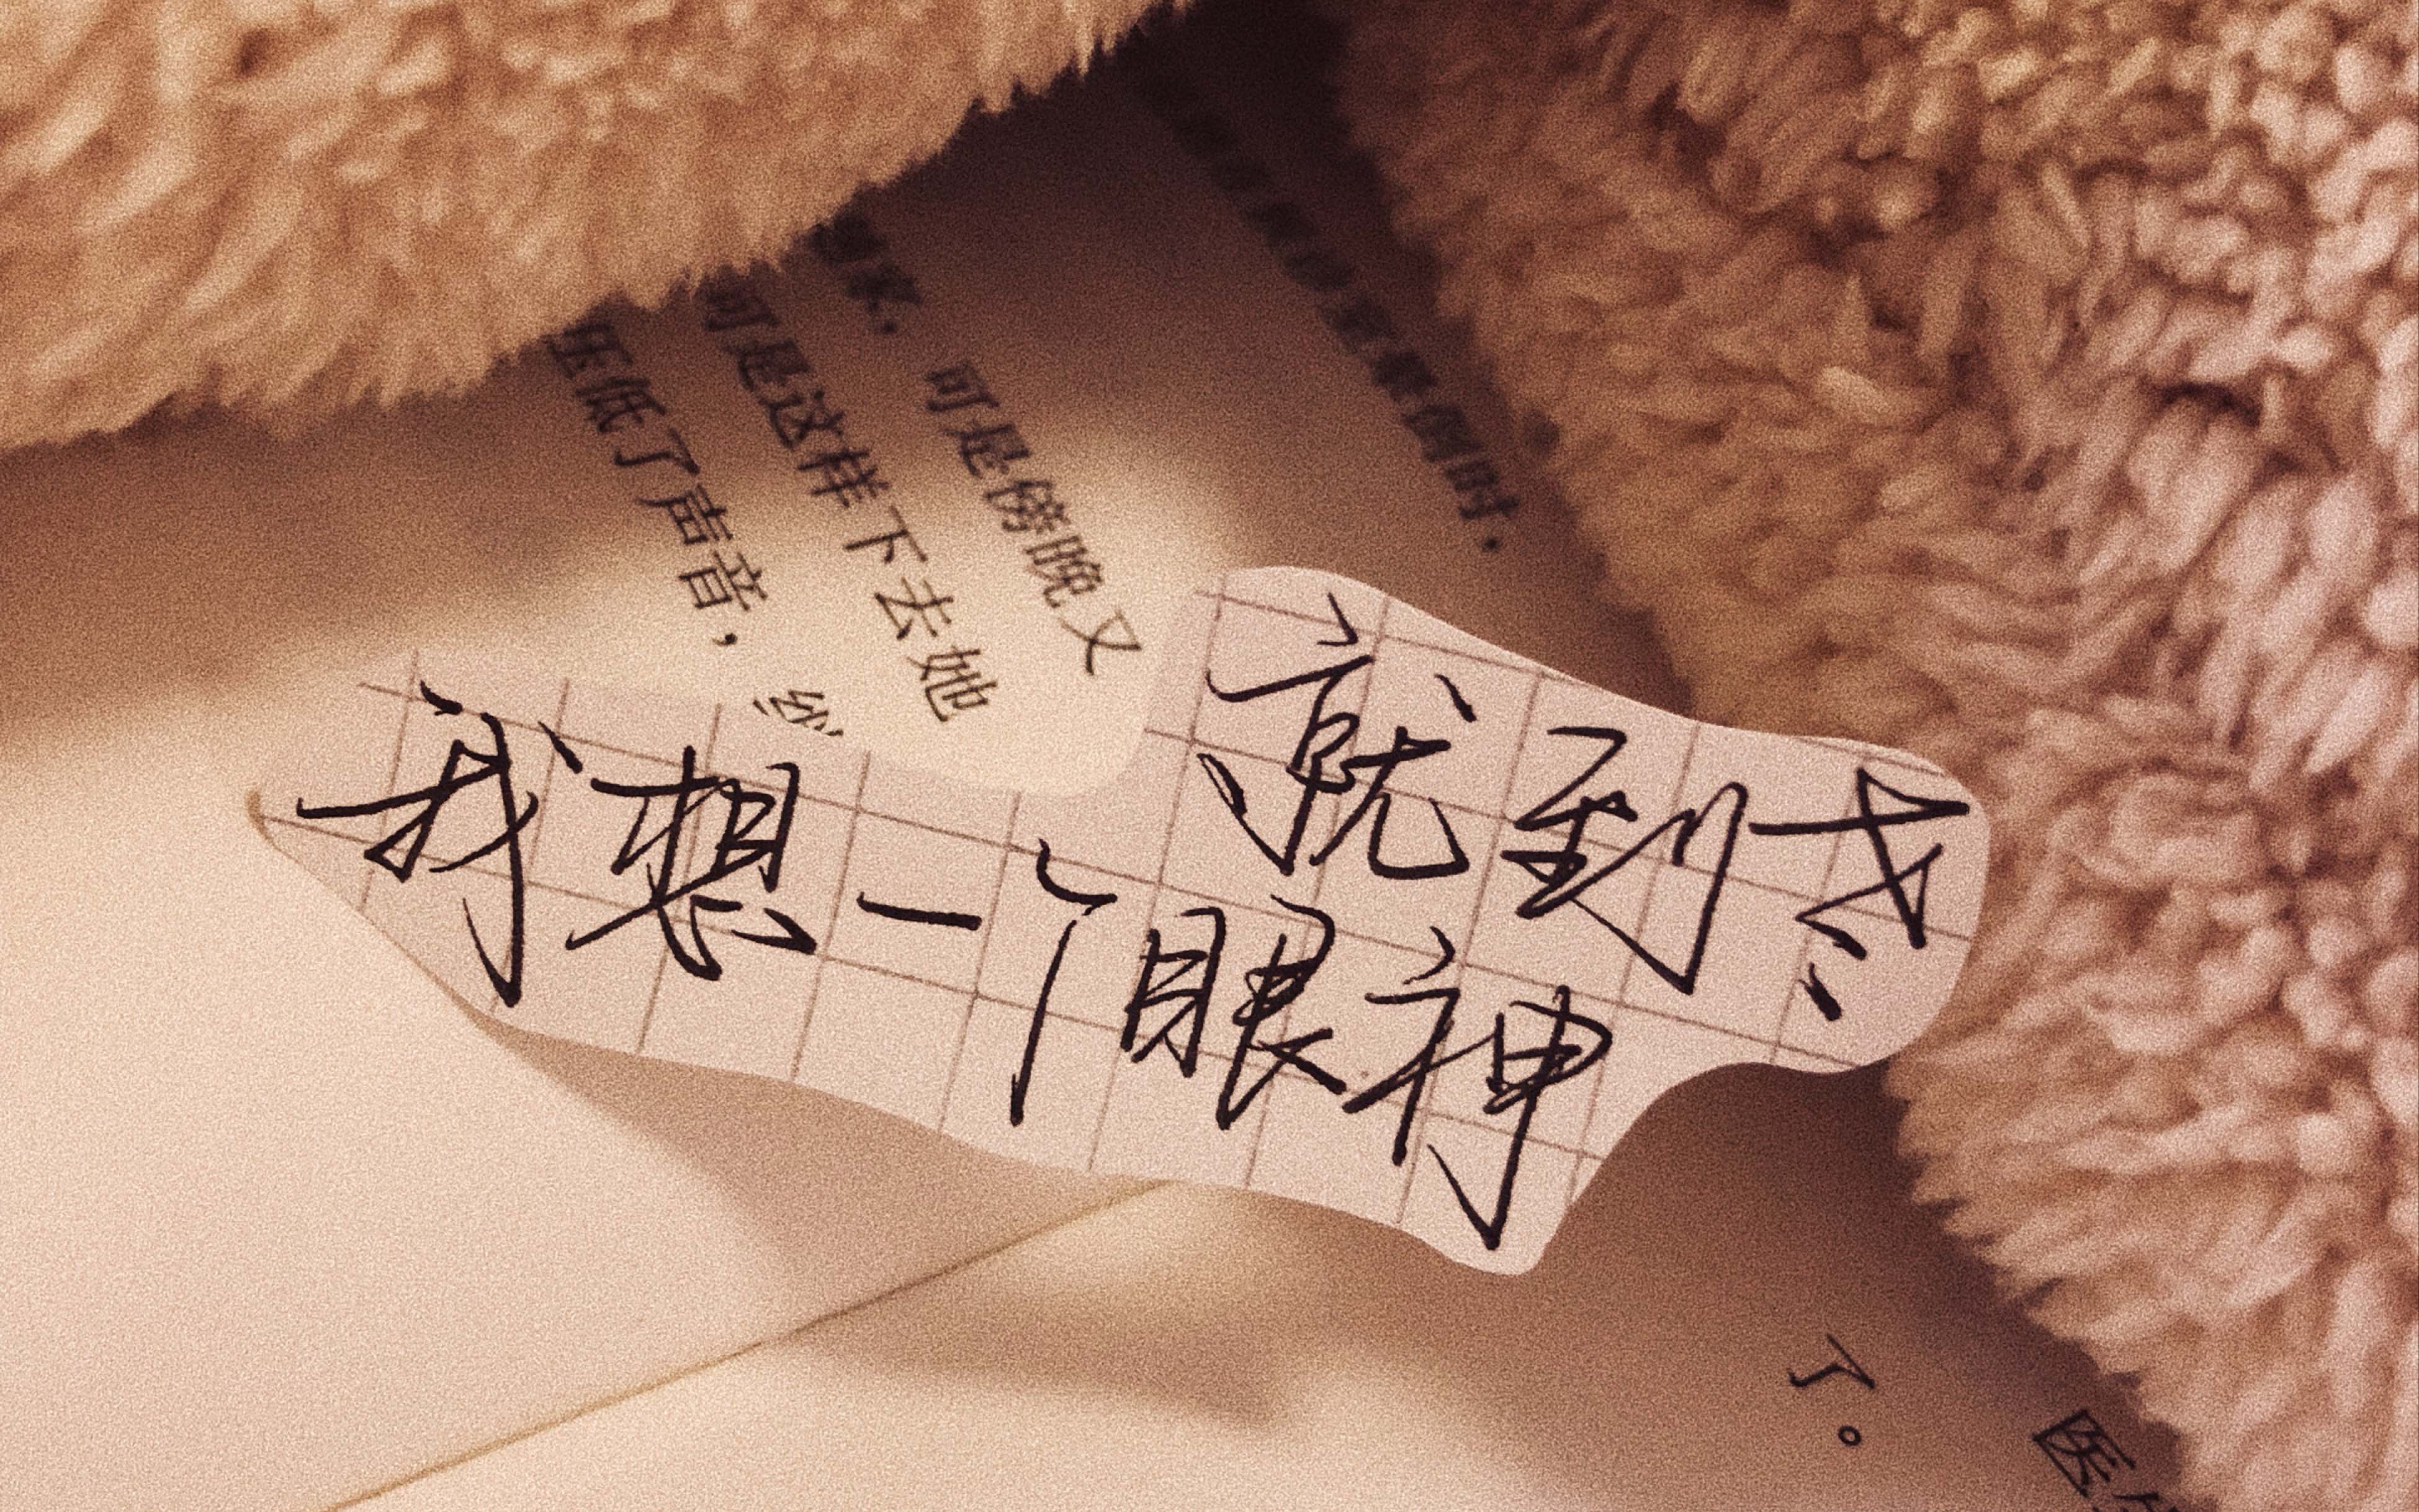 可是傍晚又
可是这样下去她
压低了声音，
我想一个眼神
就到老
了。
医生